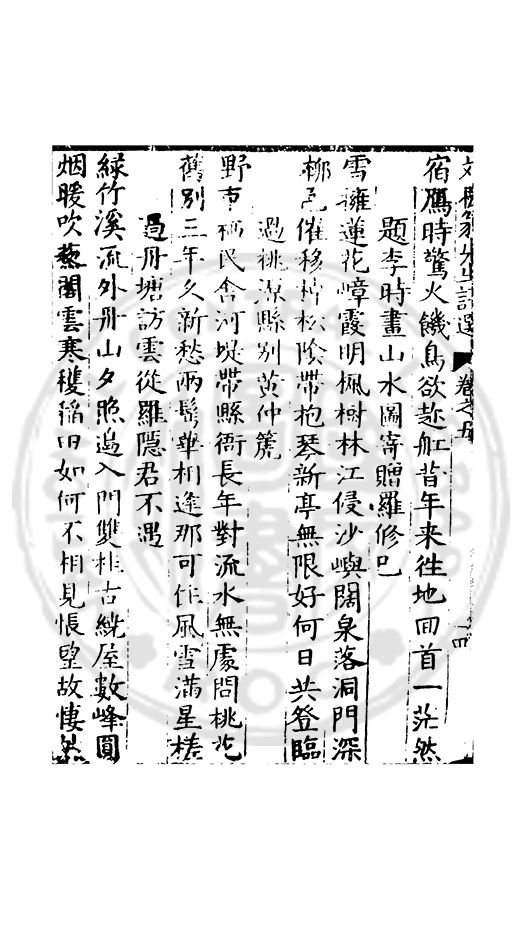 先生詩選 卷之五
宿鴈時驚火饑烏欲趂舡昔年来徃地回首一茫然
題李時畫山水圖寄贈羅修巳
雪擁蓮花嶂霞明楓樹林江侵沙嶼闊泉落洞門深
柳邑催移棹松陰帶抱琴新亭無限好何日共登臨
過桃源縣别黄仲箎
野市稀民舎河堤帶縣衙長年對流水無處問桃花
舊别三年久新愁兩鬂華相逢那可作風雪滿星槎
過丹塘訪雲從羅隠君不遇
緑竹溪流外丹山夕照邉入門雙桂古繞屋數峰圓
烟暖吹藜閣雲寒穫稲田如何不相見悵望故悽然
四